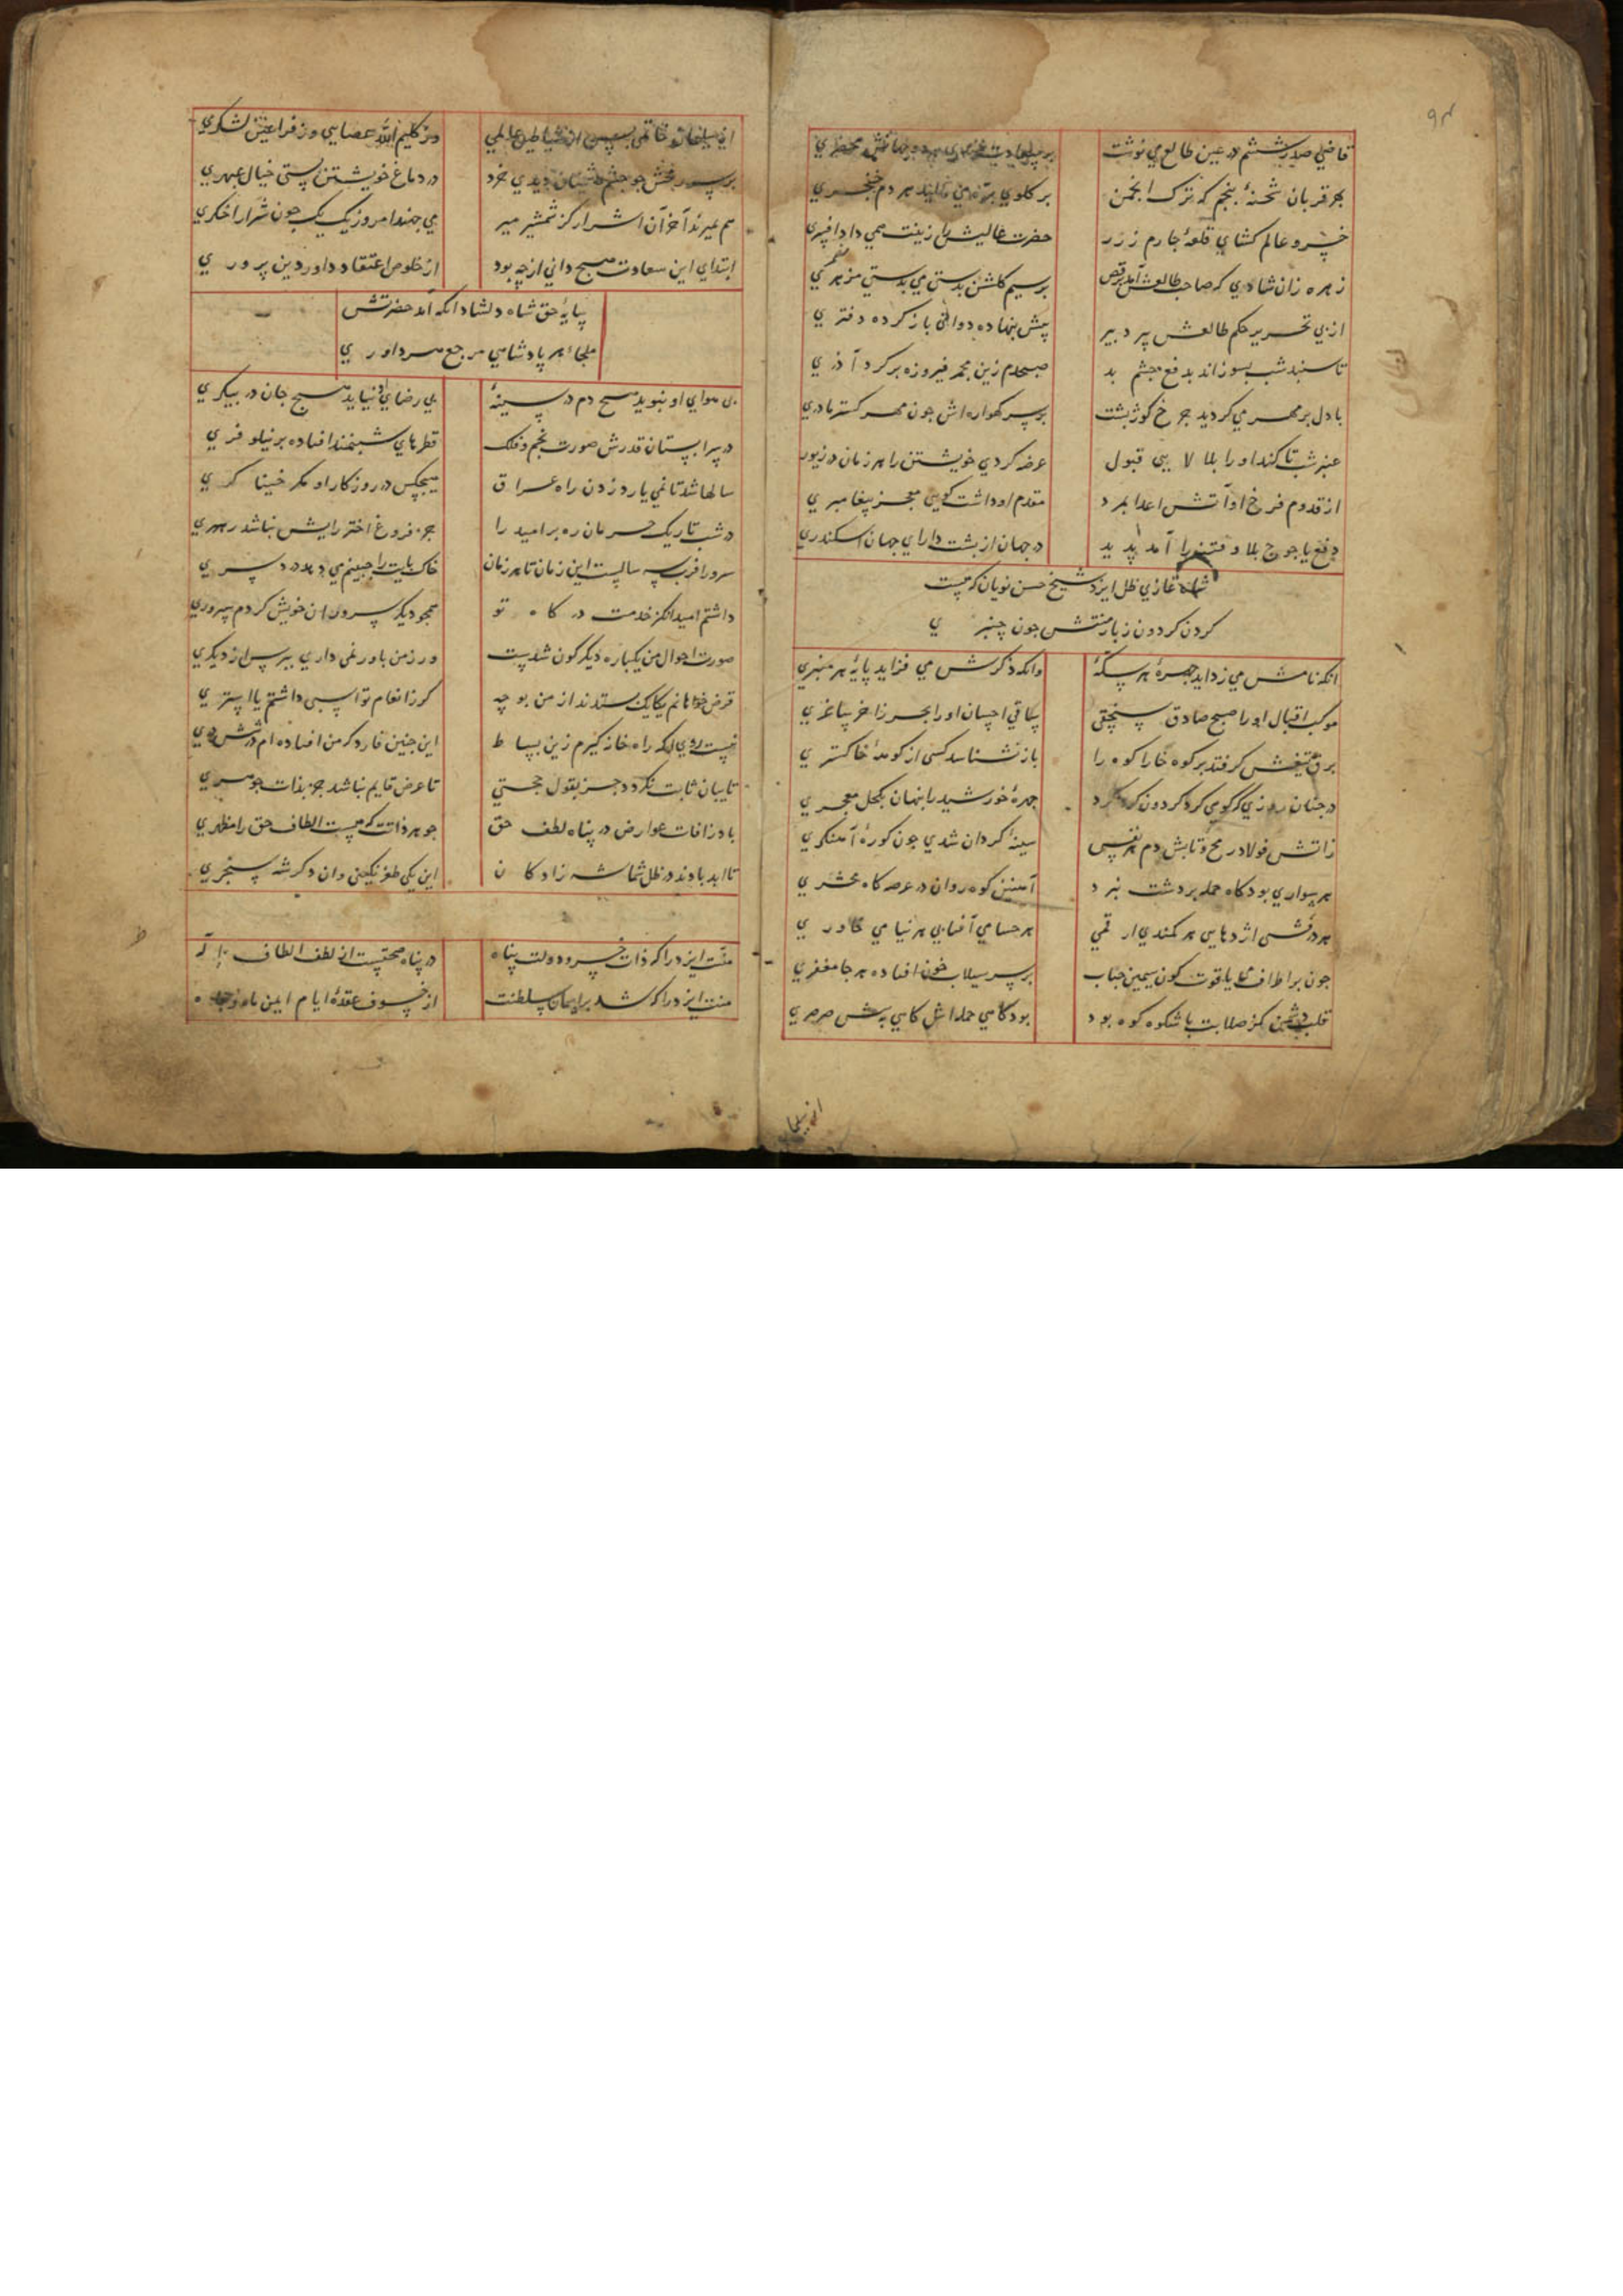 قاضی صدر ششم در عین طالع می نوشت بر سعادت محضری
بهر قربان شحنهٔ پنجم که ترک انجمن بر کلوی هر دم خنجری
خسرو عالم کشای قلعهٔ جارم ز زر حضرت عالیش را زینت همی داد افسری
زهره زان شادی که صاحب طالعش آمد برقص بر سیم کلشن بدستی می بدستی مزهری
از پی تحریر حکم طالعش پیر دبیر پیش بنهاده دواتی باز کرده دفتری
تا سپند شب بسوزاند بدفع چشم بد صبحدم زین مجمر فیروزه بر کرد آذری
با دل بر مهر می کردید جرخ کوژ بشت بر سر کهواره اش جون مهر کستر مادری
عنبر شب تا کند او را بلالایی قبول عرضه کردی خویشتن را هر زمان در زیوری
از قدوم فرخ او آتش اعدا بمرد مقدم او داشت کویی معجز پیغامبری
دفع یاجوج بلا و فتنه را آمد پدید در جهان از بشت دارای جهان اسکندری
شاه غازی ظل ایزد شیخ حسن نویان که هست
کردن کردون ز بار منتش جون چنبری
انکه نامش می زداید جهرهٔ هر سکهٔ وانکه ذکرش می فزاید پایهٔ هر منبری
موکب اقبال او را صبح صادق سنجقی ساقی احسان او را بحر زاخر ساغری
برق تیغش کر فتد بر کوه خارا کوه را باز نشناسد کسی از کومهٔ خاکستری
در جنان روزی که کوی کرد کردون کرد کرد جهرهٔ خورشید را بنهان بکحل معجری
زاتش فولاد رمح و تابش دم هر نفس سینهٔ کردان شدی جون کورهٔ آهنکری
هر سواری بود کاه حمله بر دشت نبرد آهنین کوه روان در عرصه کاه محشری
هر درفشی اژدهایی هر کمندی ارقمی هر حسامی آفتابی هر نیامی خاوری
جون بر اطراف یاقوت کون سیمین حباب بر سر سیلاب خون افتاده هر جا مغفری
قلب دشمن کز صلابت با شکوه کوه بود بود کاهی حمله اش کاهی به پیش صرصری
از سلیمان خاتمی بس از شیاطین عالمی وز کلیم الله عصایی وز فراعین لشکری
بر سر رمحش جو جشم دشمنان دیدی خرد در دماغ خویشتن بستی خیال عبهری
هم بمیرند آخر آن اشرار کز شمشیر میر می جهند امروز یک یک جون شرار اخکری
ابتدای این سعادت هیج دانی از چه بود از خلوص اعتقاد داور دین پروری
سایهٔ حق شاه دلشاد انکه آمد حضرتش
ملجاء هر پادشاهی مرجع هر داوری
بی هوای او نبوید هیج دم در سینهٔ بی رضای او نیاید هیج جان در بیکری
در سرابستان قدرش صورت نجم و فلک قطرهای شبنمند افتاده بر نیلوفری
سالها شد تا نمی یارد زدن راه عراق هیچکس در روزکار او مکر خنیاکری
در شب تاریک حرمان ره بر امید را جز فروغ اختر رایش نباشد رهبری
سرورا قرب سه سالیست این زمان تا هر زمان خاک بایت را جبینم می دهد درد سری
داشتم امید انکز خدمت درکاه تو همجو دیکر سروران خویش کردم سروری
صورت احوال من یکباره دیکر کون شدست ور ز من باور نمی داری ببرس از دیکری
قرض خواهانم یکایک بستدند از من بوجه کر ز انعام تو اسبی داشتم یا استری
نیست روی انکه راه خانه کیرم زین بساط این جنین قارد که من افتاده ام در ششدری
تا بیان ثابت نکردد جز بقول حجتی تا عرض قایم نباشد جز بذات جوهری
باد ز افات عوارض در پناه لطف حق جوهر ذاتت که هست الطاف حق را مظهری
تا ابد بادند در ظل شما شه زادکان این یکی طغرل نکینی وان دکر شه سنجری
منت ایزد را که ذات خسرو دولت پناه در پناه صحتست از لطف الطاف اله
منت ایزد را که شد بر آسمان سلطنت از خسوف عقدهٔ ایام ایمن ماه و جاه